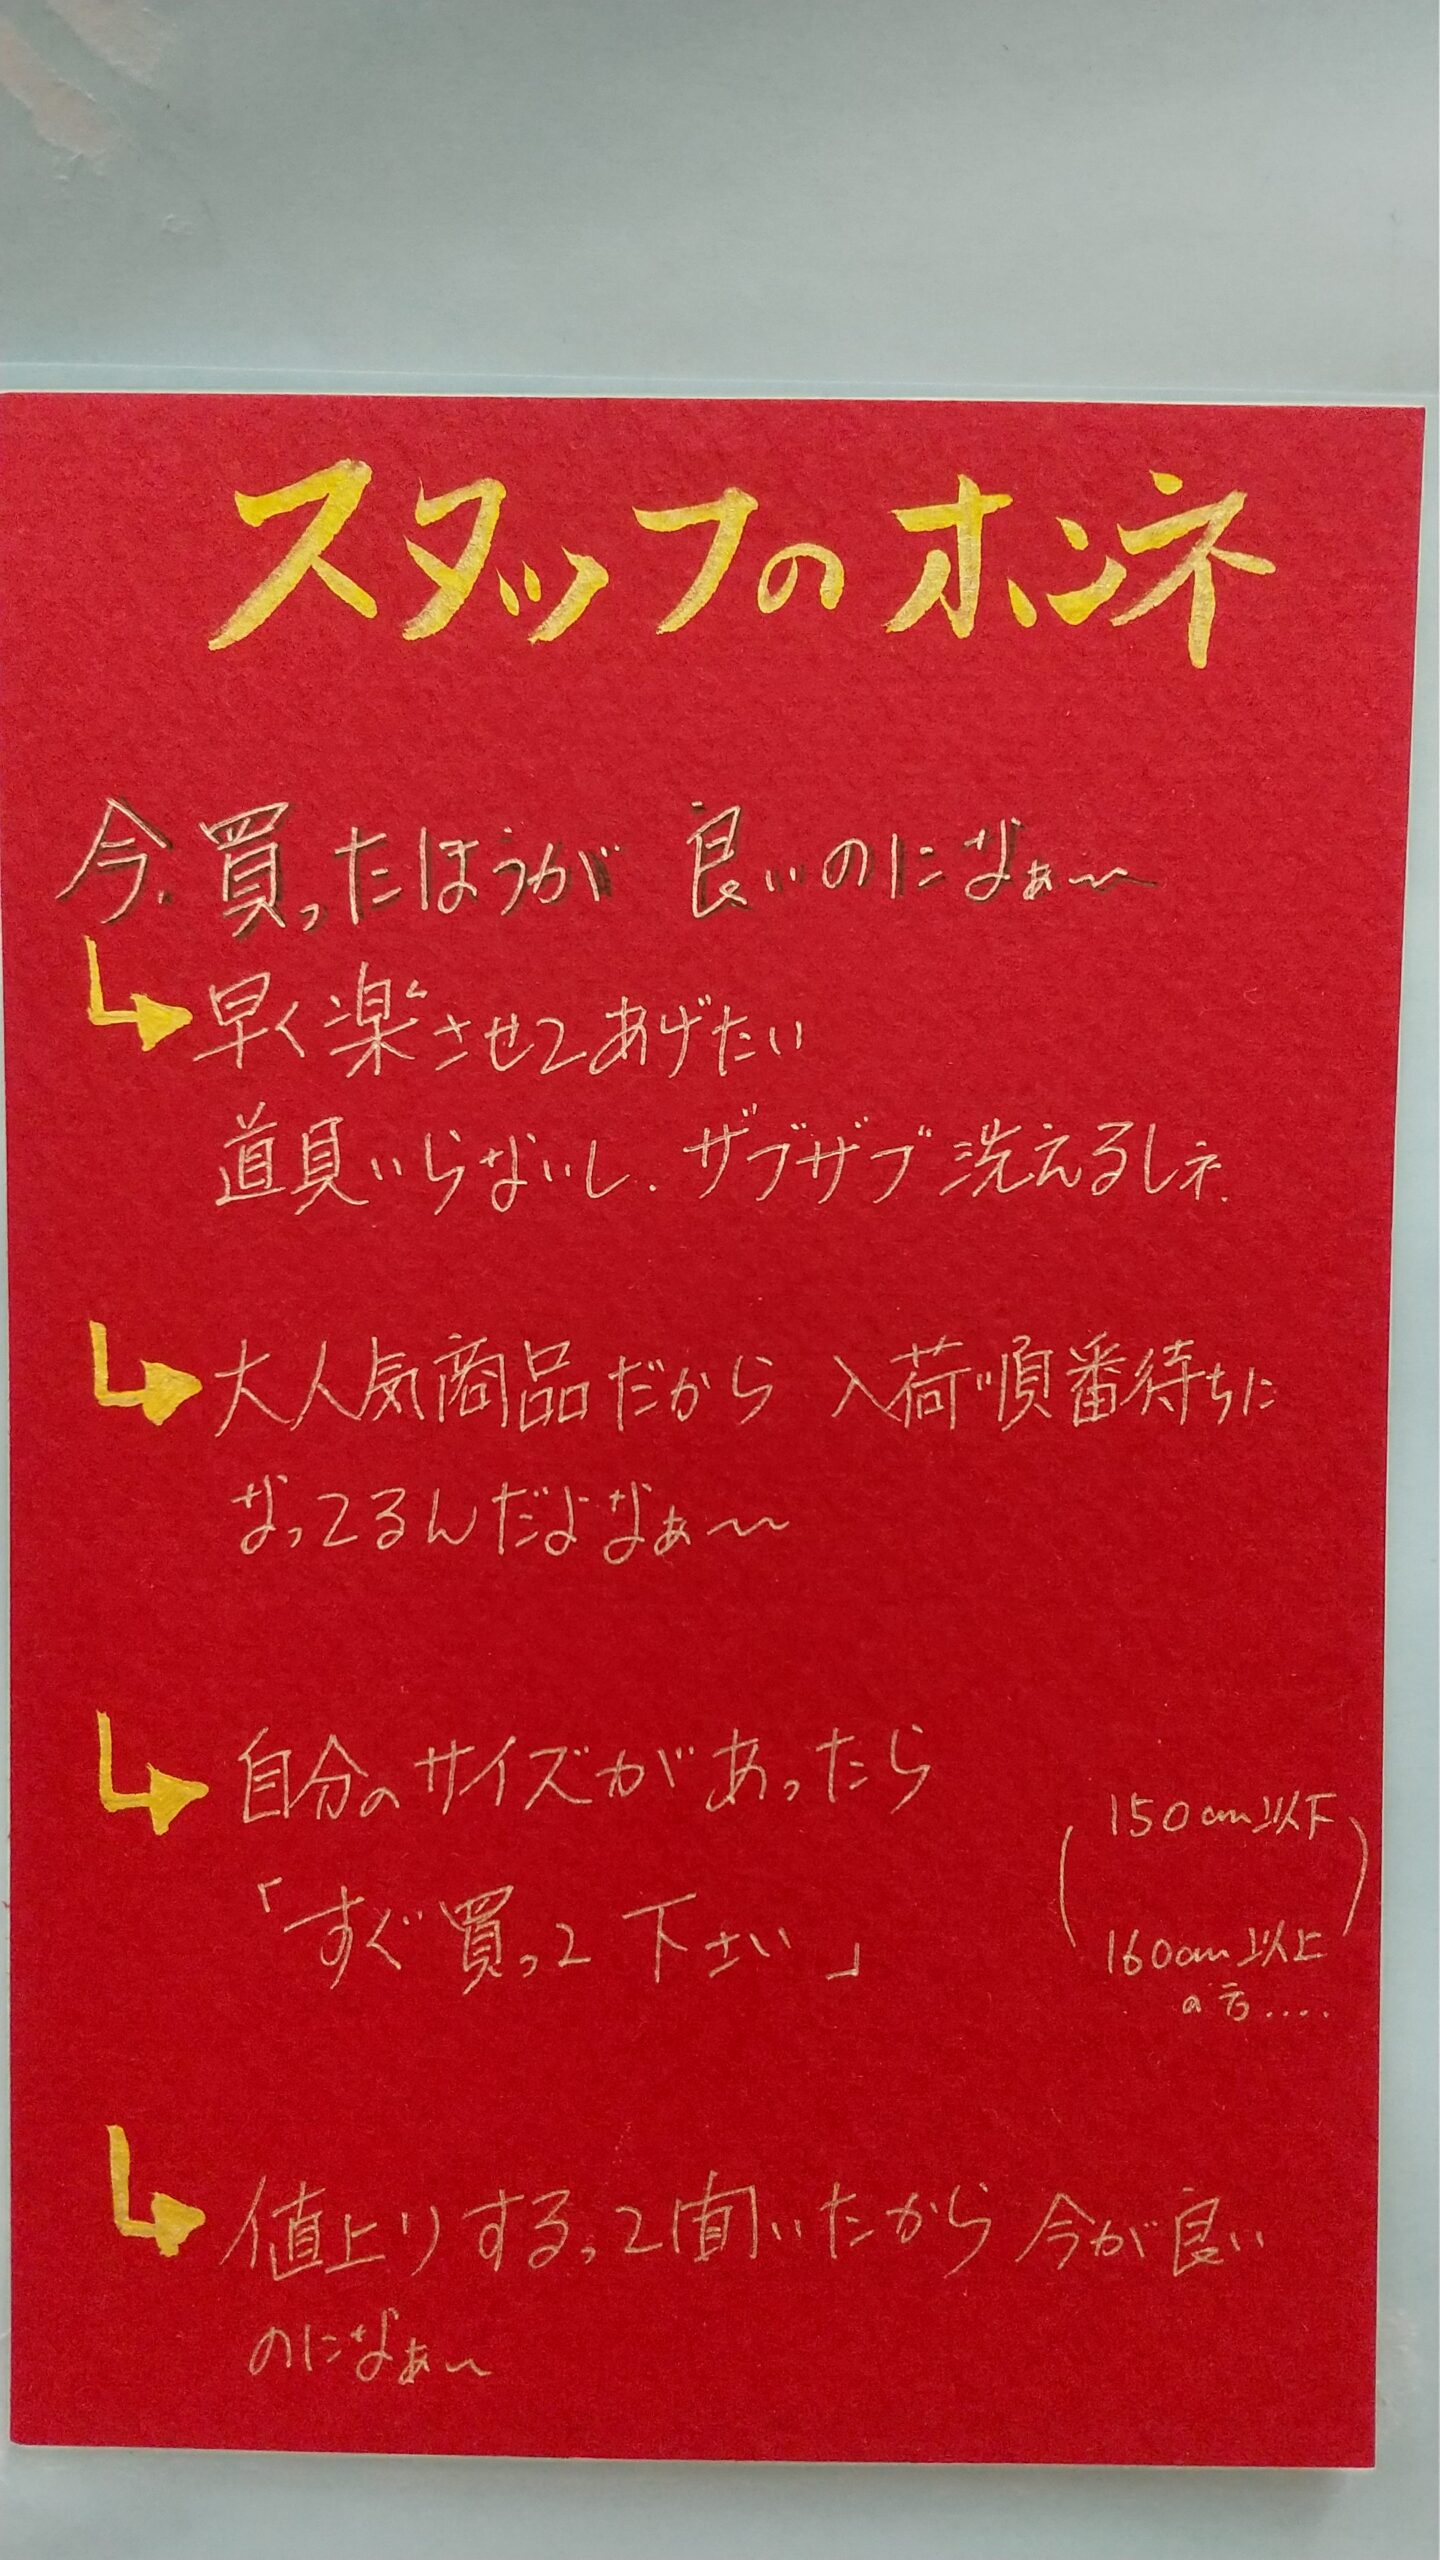 スタッフのホンネ
今、買ったほうが 良いのになぁ〜
早く楽させてあげたい
道具いらないし、ザブザブ洗えるしネ、
大人気商品だから 入荷順番待ちに
なってるんだよなぁ〜
自分のサイズがあったら
「すぐ買って下さい」
(150cm以下
160cm以上
の方....)
値上りするって聞いたから今が良い
のになぁ〜